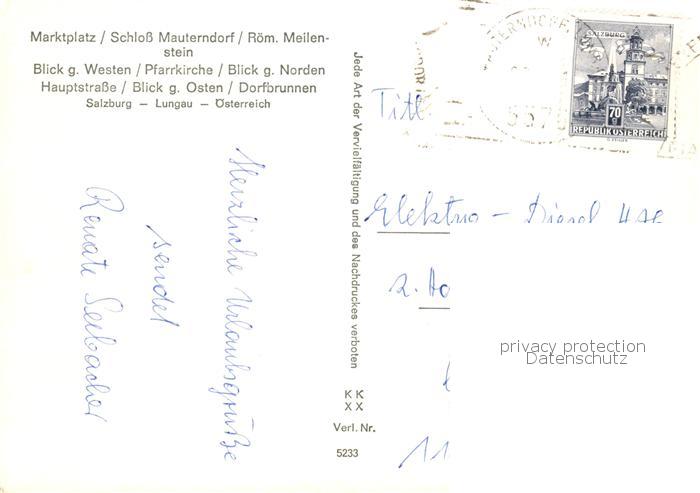 Marktplatz / Schloß Mauterndorf / Röm. Meilen-
stein
Blick g. Westen / Pfarrkirche / Blick g. Norden
Hauptstraße / Blick g. Osten / Dorfbrunnen
Salzburg — Lungau — Österreich
Herzliche Urlaubsgrüße
sendet
Renate Seebacher
Jede Art der Vervielfältigung und des Nachdruckes verboten
K K
X X
Verl. Nr.
5233
SALZBURG
70
REPUBLIK ÖSTERREICH
557
Titl.
Elektro - Diesel
z. Ho
11
privacy protection
Datenschutz